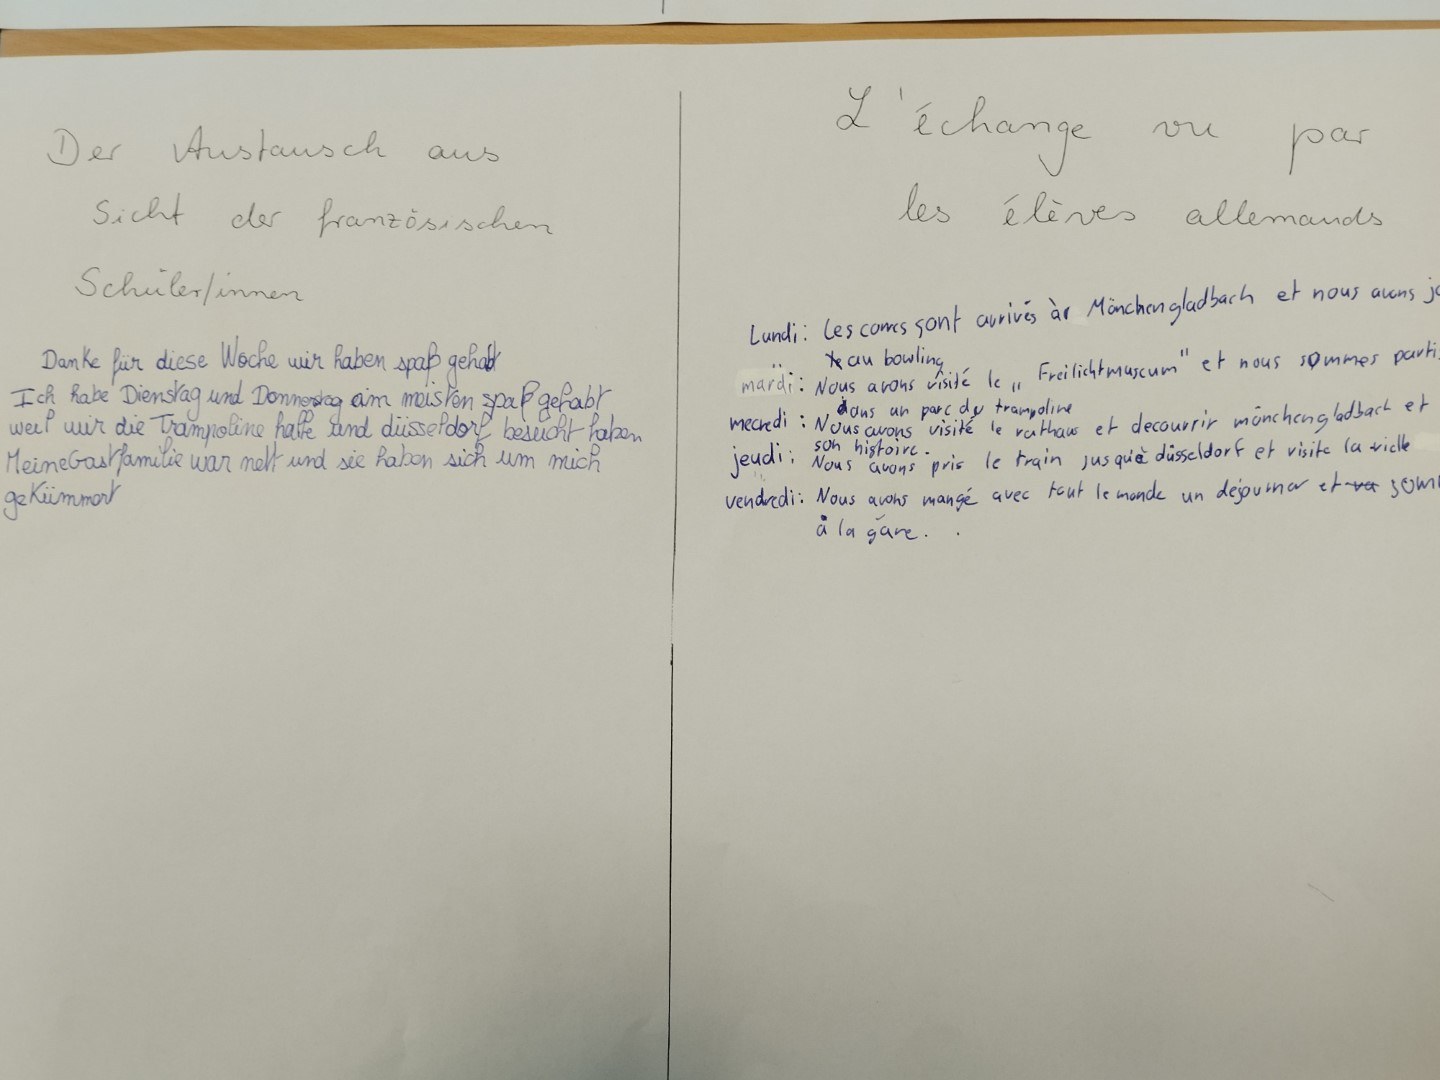 Der Austausch aus
Sicht der französischen
Schüler/innen
Danke für diese Woche wir haben spaß gehabt
Ich habe Dienstag und Donnerstag am meisten spaß gehabt
weil wir die Trampoline halle und düsseldorf besucht haben
Meine Gastfamilie war nett und sie haben sich um mich
gekümmert
L'échange vu par
les élèves allemands
Lundi: Les corres sont arrivés à Mönchengladbach et nous avons
au bowling
mardi: Nous avons visité le „Freilichtmuseum" et nous sommes partis
dans un parc du trampoline
mecredi: Nous avons visité le rathaus et decouvrir mönchengladbach et
son histoire.
jeudi: Nous avons pris le train jusquà düsseldorf et visite la vielle
vendredi: Nous avons mangé avec tout le monde un dejourner et
à la gare.